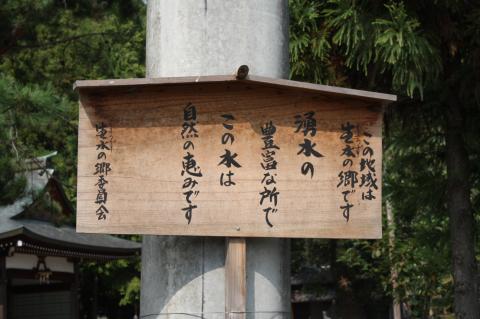 この地域は
生水の郷です
湧水の
豊富な所で
この水は
自然の恵みです
生水の郷委員会